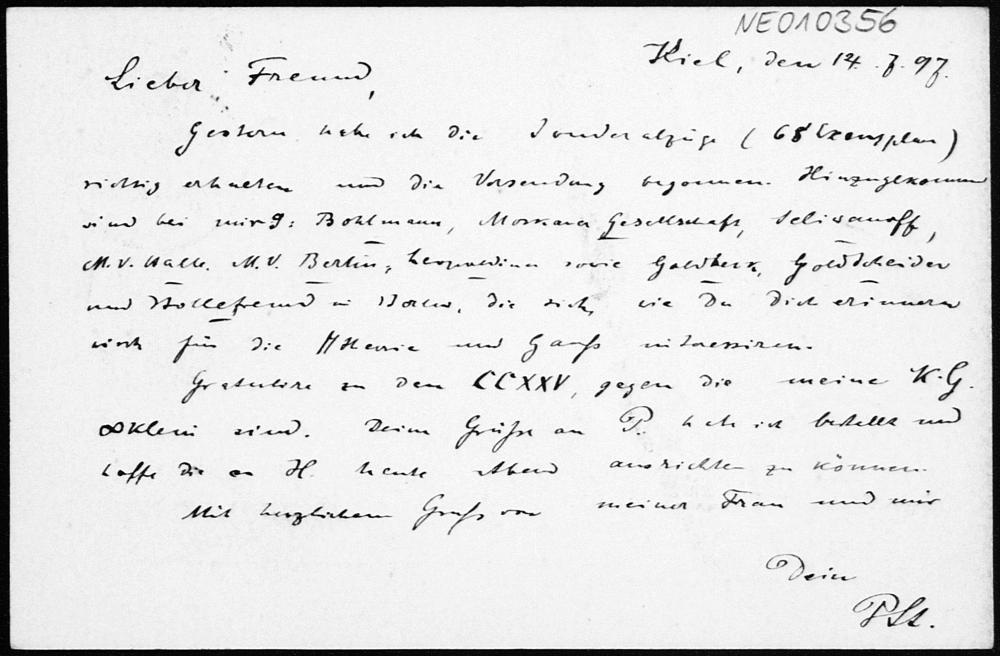 NE010356
Kiel, den 14. 7. 97.
Lieber Freund,
Gestern habe ich die Sonderabzüge (68 Exemplare)
richtig erhalten und die Versendung begonnen. Hinzugekommen
sind bei mir 9: Bohlmann, Moskauer Gesellschaft, Seliwanoff,
M.V. Halle, M.V. Berlin, Leopoldina sowie Goldbeck, Goldscheider
und in Berlin, die sich, wie Du Dich erinnern
wirst für die Theorie und Gauß interessiren.
Gratulire zu den CCXXV, gegen die meine K.G.
∞ klein sind. Deine Grüße an P. habe ich bestellt und
hoffe die an H. heute Abend ausrichten zu können.
Mit herzlichem Gruß von meiner Frau und mir
Dein
P.St.